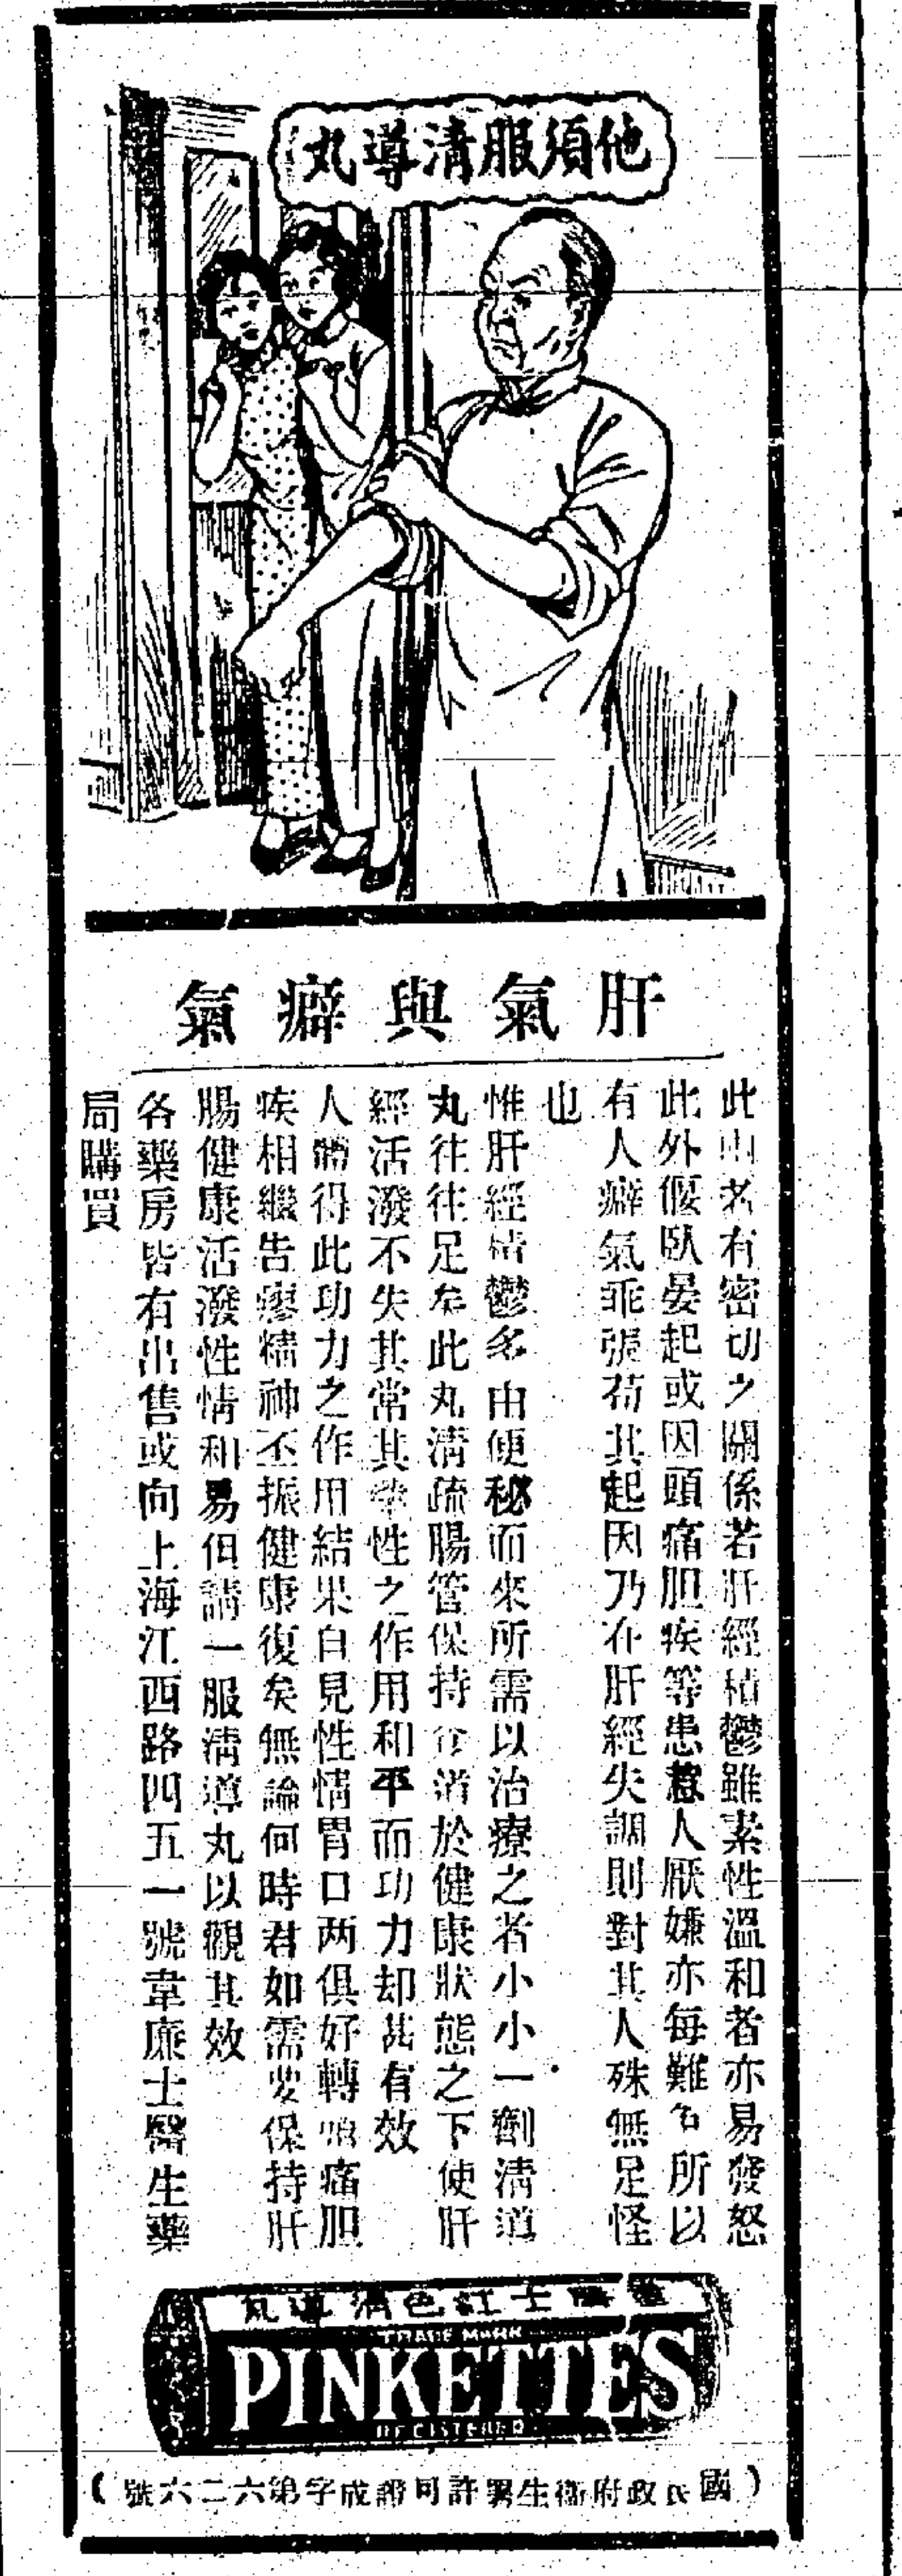 他須服清導丸
肝氣與癖氣
此由者有密切之關係若肝經積鬱雖素性溫和者亦易發怒
此外偃臥晏起或因頭痛胆疾等患惹人厭嫌亦每難名所以
有人癖氣乖張苟其起因乃在肝經失調則對其人殊無足怪
也
惟肝經積鬱多由便秘而來所需以治療之者小小一劑清道
丸往往足矣此丸清疏腸管保持道於健康狀態之下使肝
經活潑不失其常其性之作用和平而功力却甚有效
人體得此功力之作用結果自見性情胃口两俱好轉頭痛胆
疾相繼告瘳精神丕振健康復矣無論何時君如需要保持肝
腸健康活潑性情和易但請一服清導丸以觀其效
各藥房皆有出售或向上海江西路四五一號韋廉士醫生藥
局購買
士紅色清導丸
TRADE MARK
PINKETTES
REGISTERED
(國民政府衞生署許可證成字第六二六號)